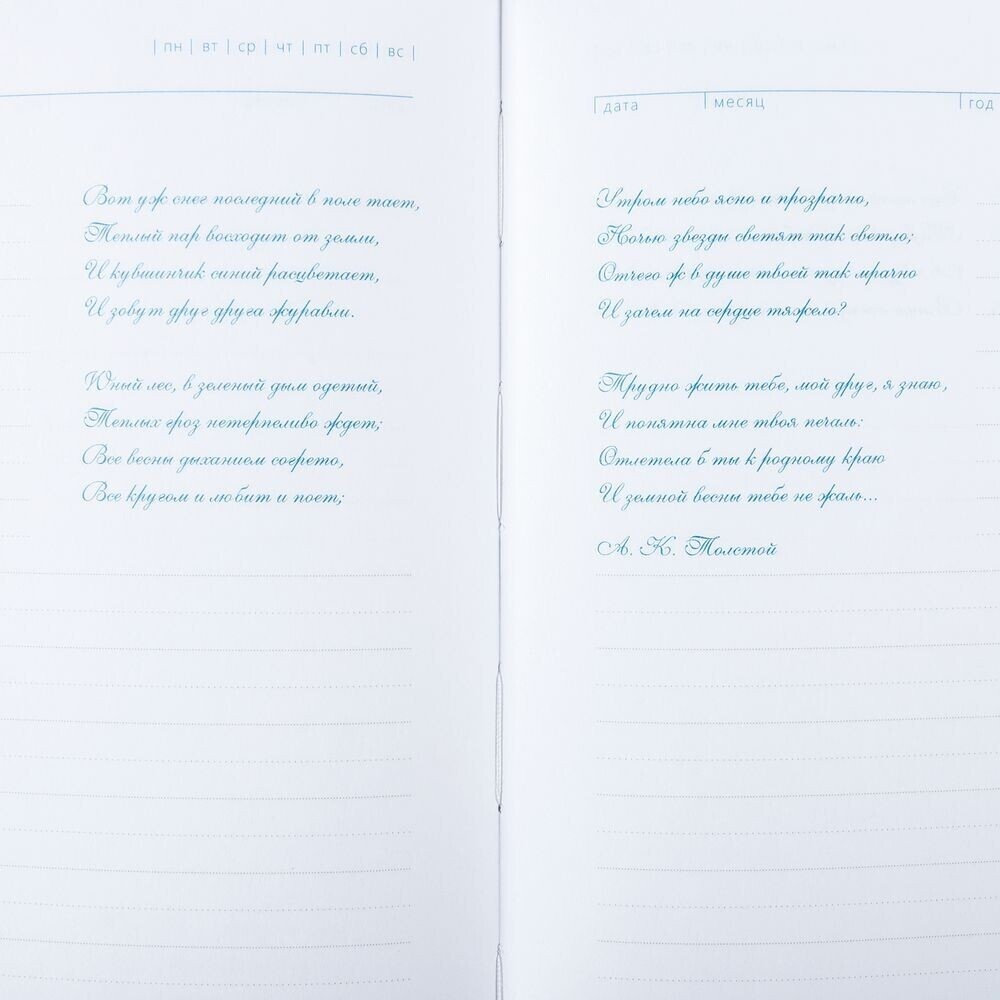 | пн | вт | ср | чт | пт | сб | вс |
Вот уж снег последний в поле тает,
Теплый пар восходит от земли,
И кувшинчик синий расцветает,
И зовут друг друга журавли.
Юный лес, в зеленый дым одетый,
Теплых гроз нетерпеливо ждет;
Все весны дыханием согрето,
Все кругом и любит и поет;
дата месяц год
Утром небо ясно и прозрачно,
Ночью звезды светят так светло;
Отчего ж в душе твоей так мрачно
И зачем на сердце тяжело?
Трудно жить тебе, мой друг, я знаю,
И понятна мне твоя печаль:
Отлетела б ты к родному краю
И земной весны тебе не жаль...
А. К. Толстой